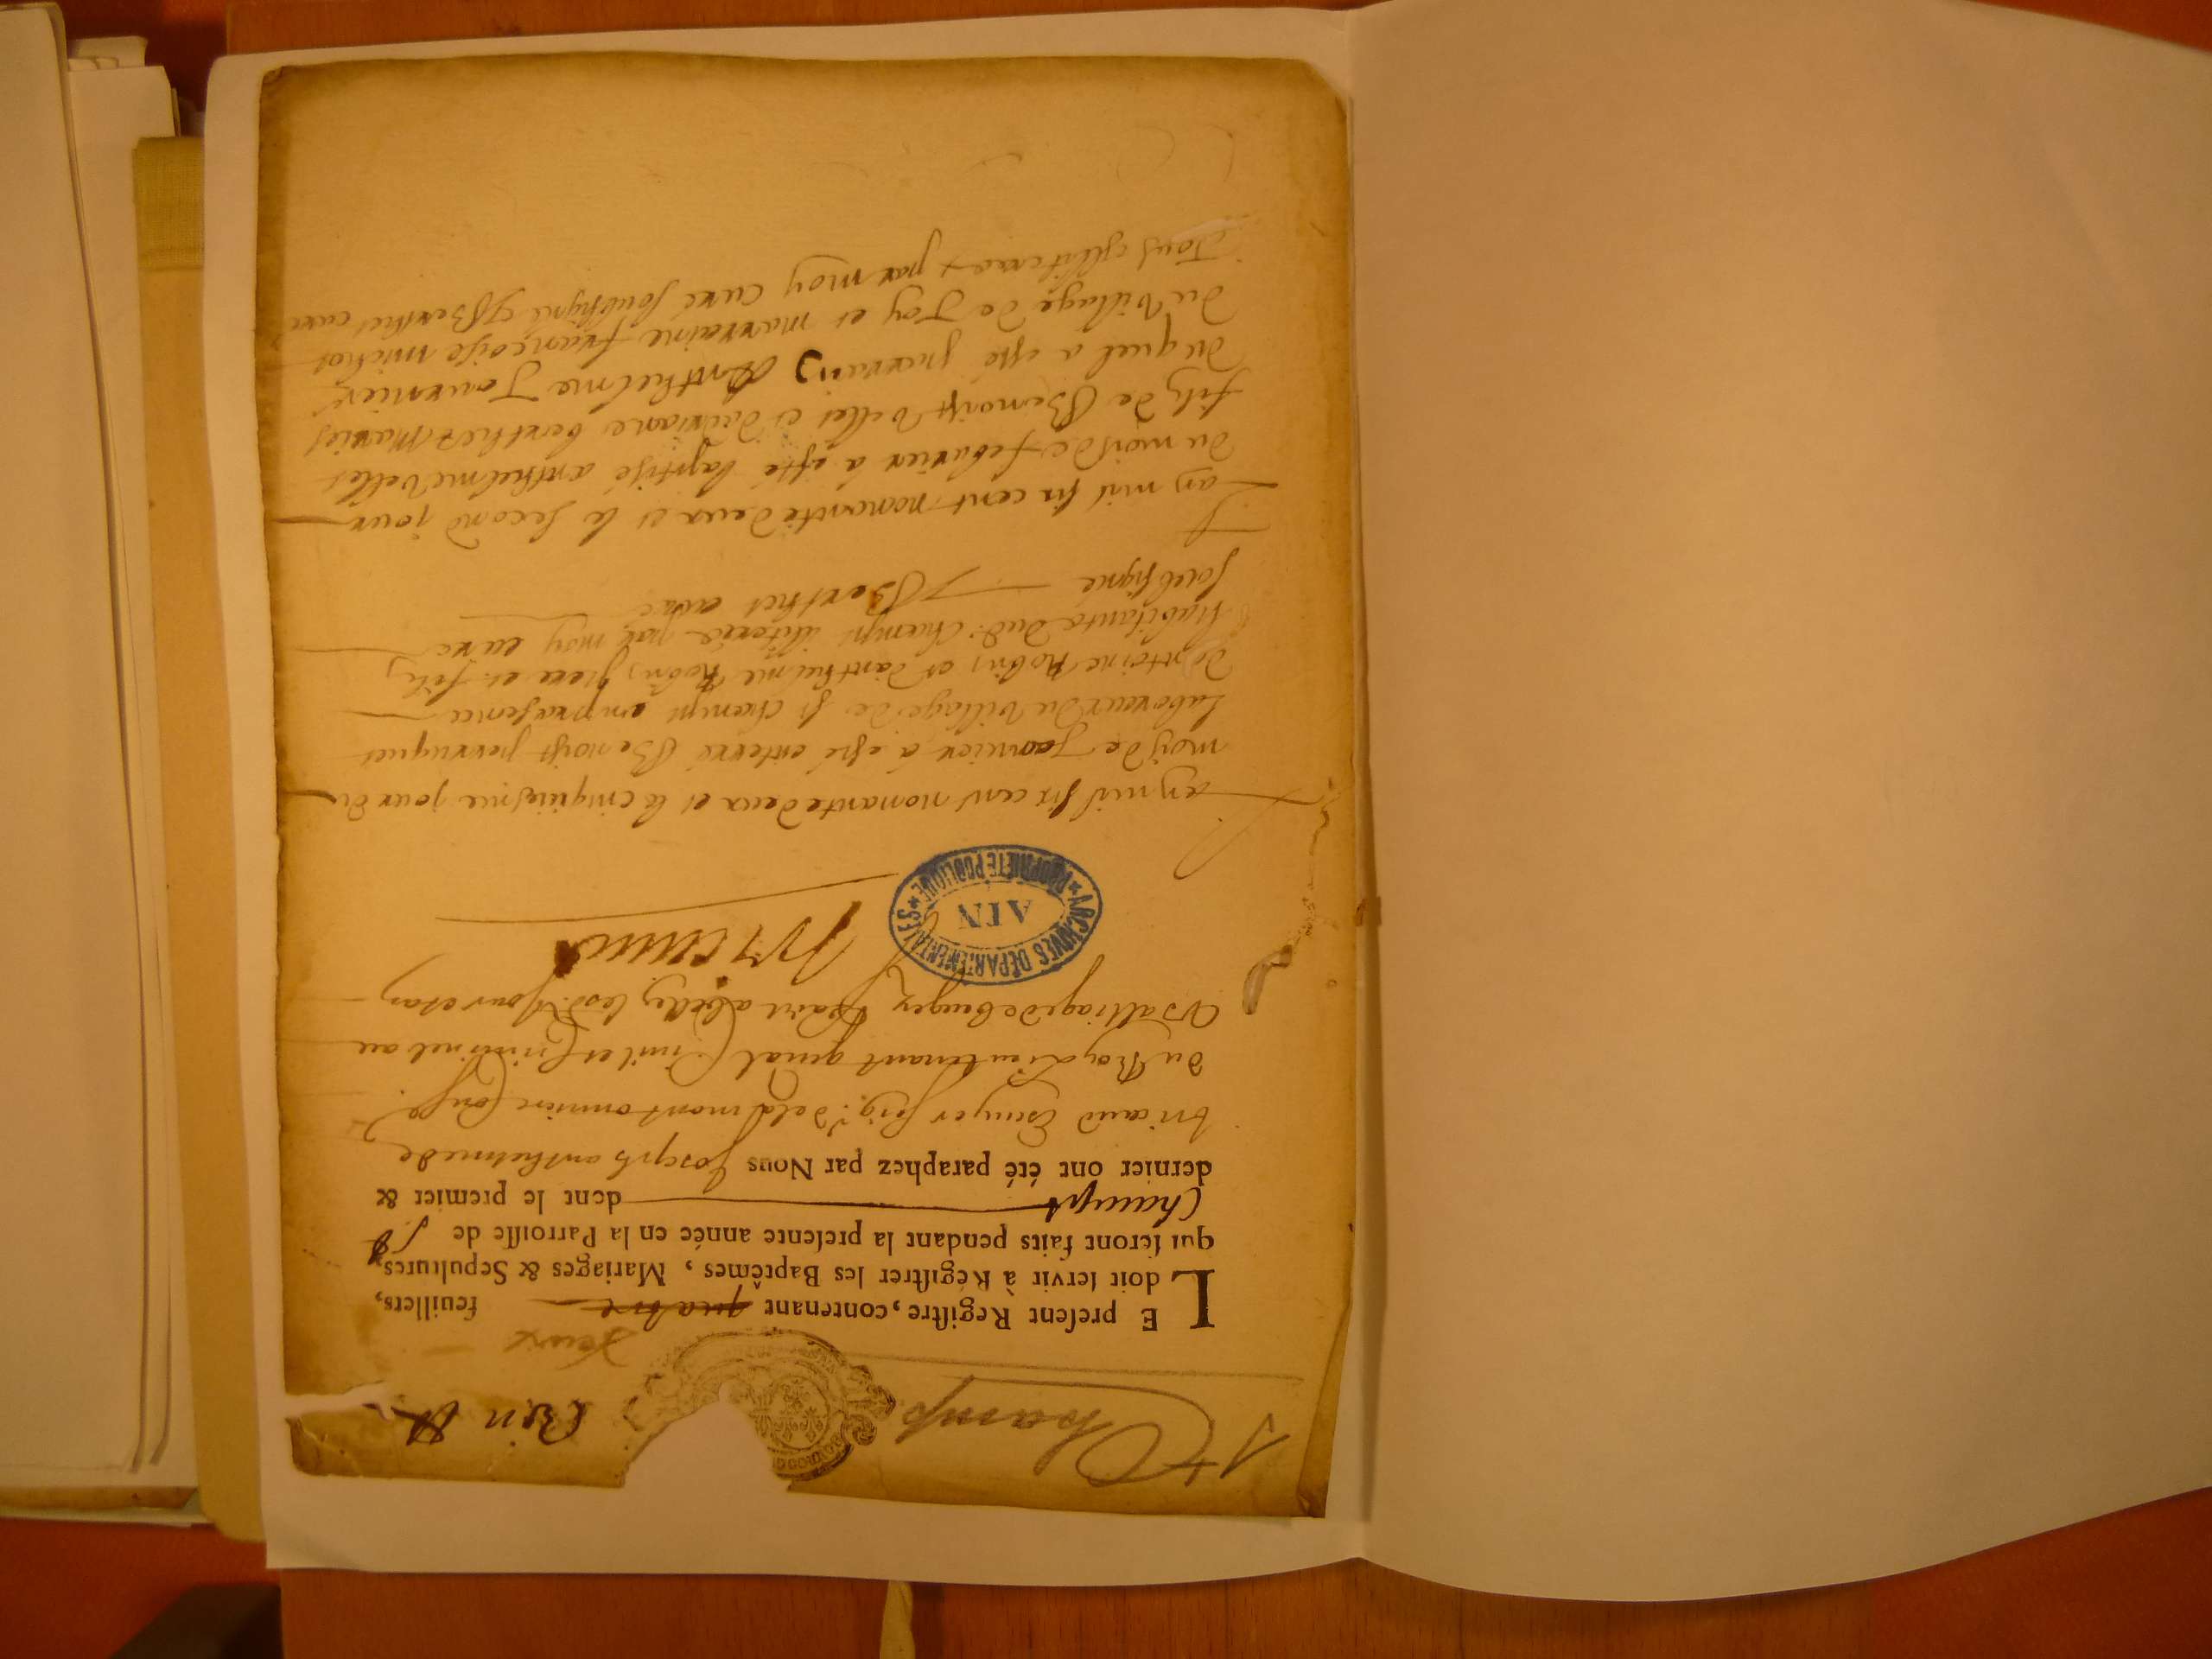 St Champ
deux
LE preſent Regiſtre, contenant quatre feuillets,
doit ſervir à Régiſtrer les Baptêmes, Mariages & Sepultures,
qui ſeront faits pendant la preſente année en la Parroiſſe de St
Champt dont le premier &
dernier ont été paraphez par Nous Joseph anthelme de
Escuyer seigr de la montanniere
du Roy Lieutenant gnal Civil et Criminel au
Balliage de bugey
ARCHIVES DÉPARTEMENTALES
AIN
PROPRIÉTÉ PUBLIQUE
L an mil six cent nonante deux et le cinquiesme jour du
mois de Janvier a esté enterré Benoist perruquet
Laboreur du village de st champt en presence
Robin et danthelme Robin pere et fils
habitants dud. champt par moy curé
soubsigné Berthet curé
L an mil six cent nonante deux et le second jour
du mois de febvrier a esté baptisé anthelme Vellet
filz de Benoist Vellet et dadriane berthet Mariés
duquel a esté parrain Anthelme Tavernier
du village de Joy et marraine françoise michot
par moy curé soubsigné Berthet curé